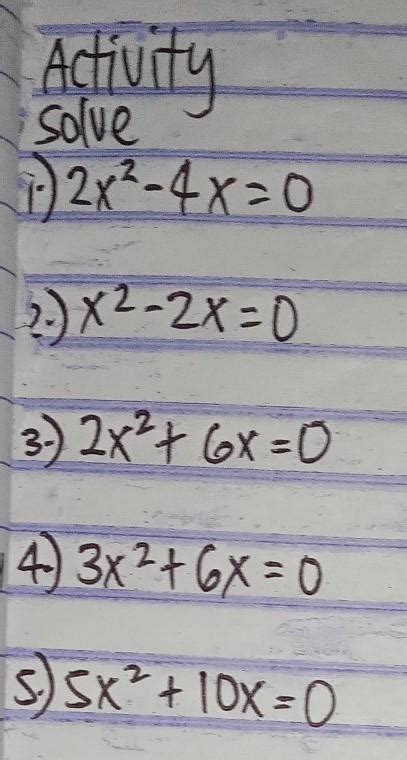 Activity
Solve
1.) 2x² - 4x = 0
2.) x² - 2x = 0
3.) 2x² + 6x = 0
4.) 3x² + 6x = 0
5.) 5x² + 10x = 0